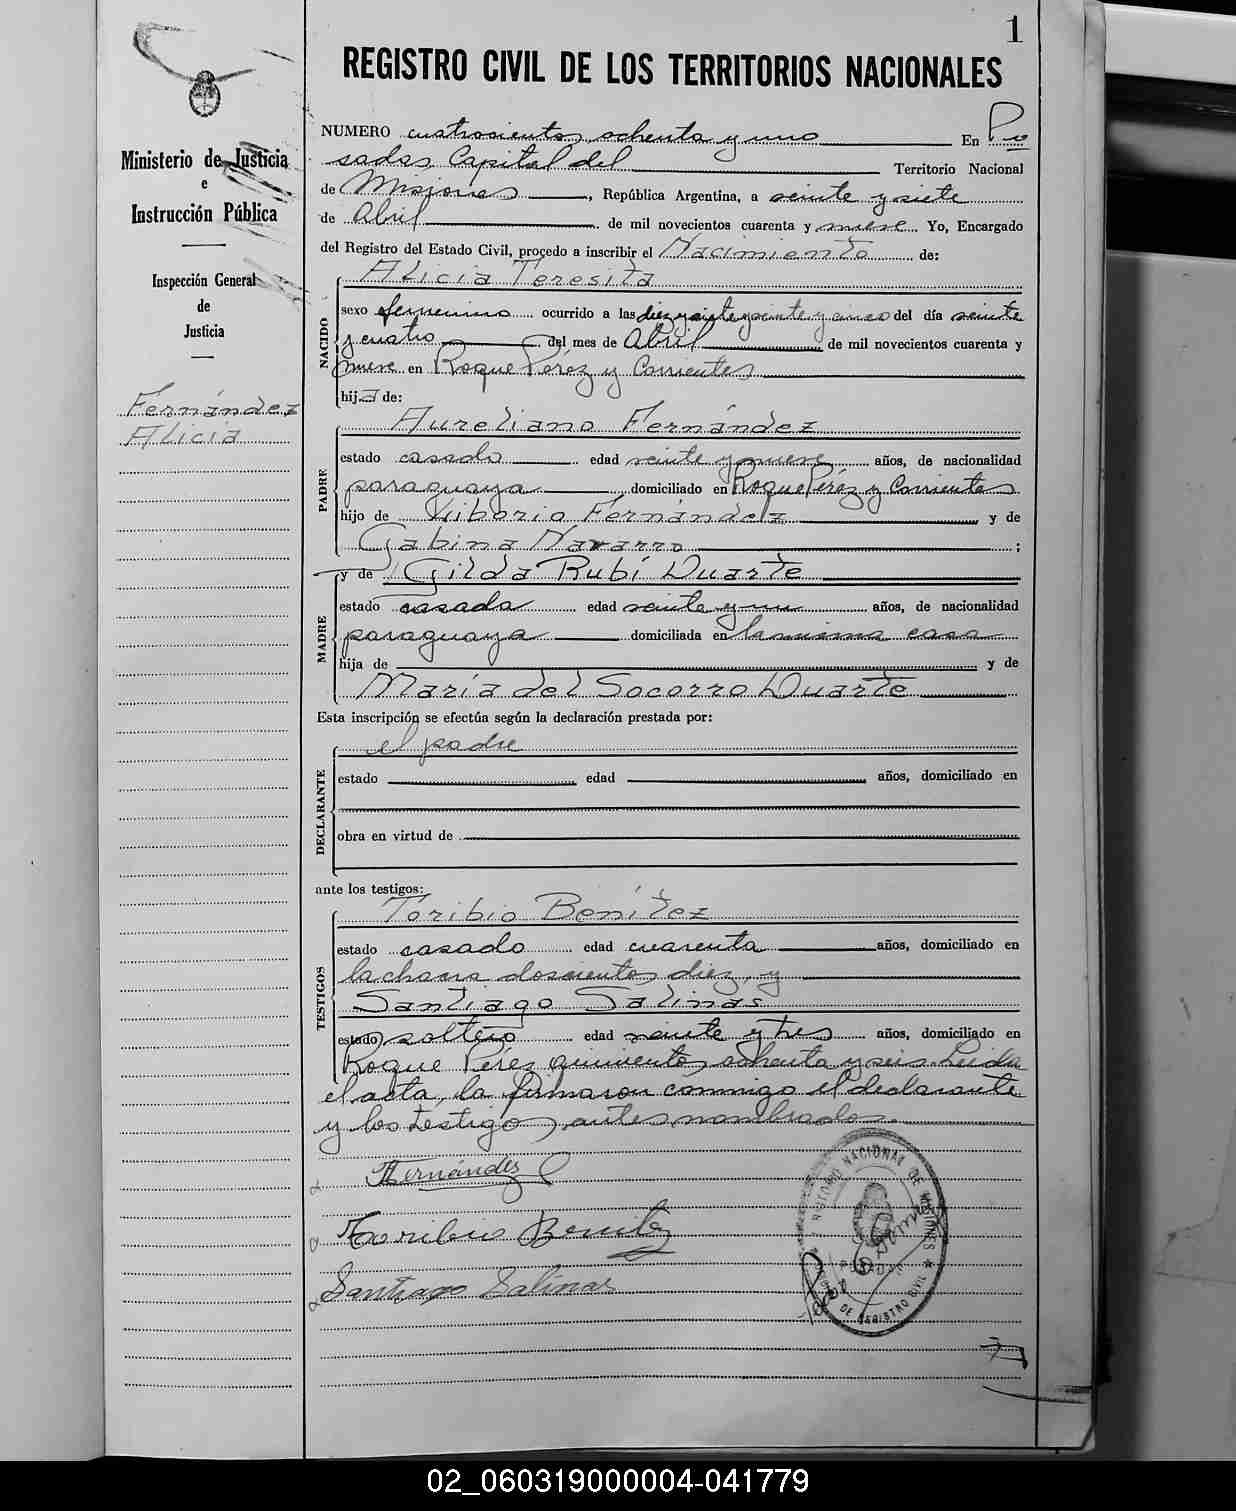 1
REGISTRO CIVIL DE LOS TERRITORIOS NACIONALES
Ministerio de Justicia
e
Instrucción Pública
Inspección General
de
Justicia
Fernández
Alicia
NUMERO cuatrocientos ochenta y uno En Po
sadas Capital del Territorio Nacional
de Misiones, República Argentina, a veinte y siete
de Abril de mil novecientos cuarenta y nueve Yo, Encargado
del Registro del Estado Civil, procedo a inscribir el Nacimiento de:
NACIDO
Alicia Teresita
sexo femenino ocurrido a las diez y siete y veinte y cinco del día veinte
y cuatro del mes de Abril de mil novecientos cuarenta y
nueve en Roque Pérez y Corrientes
hija de:
PADRE
Aureliano Fernández
estado casado edad veinte y nueve años, de nacionalidad
paraguaya domiciliado en Roque Pérez y Corrientes
hijo de Liborio Fernández y de
Gabina Navarro ;
MADRE
y de Gilda Rubí Duarte
estado casada edad veinte y un años, de nacionalidad
paraguaya domiciliada en la misma casa
hija de y de
María del Socorro Duarte
Esta inscripción se efectúa según la declaración prestada por:
DECLARANTE
el padre
estado edad años, domiciliado en
obra en virtud de
ante los testigos:
TESTIGOS
Toribio Benítez
estado casado edad cuarenta años, domiciliado en
la chacra doscientos diez, y
Santiago Salinas
estado soltero edad veinte y tres años, domiciliado en
Roque Pérez quinientos ochenta y seis. Leída
el acta, la firmaron conmigo el declarante
y los testigos antes nombrados.
AFernández
Toribio Benitez
Santiago Salinas
NACIONAL DE MISIONES
POSADAS
DE REGISTRO CIVIL
02_060319000004-041779